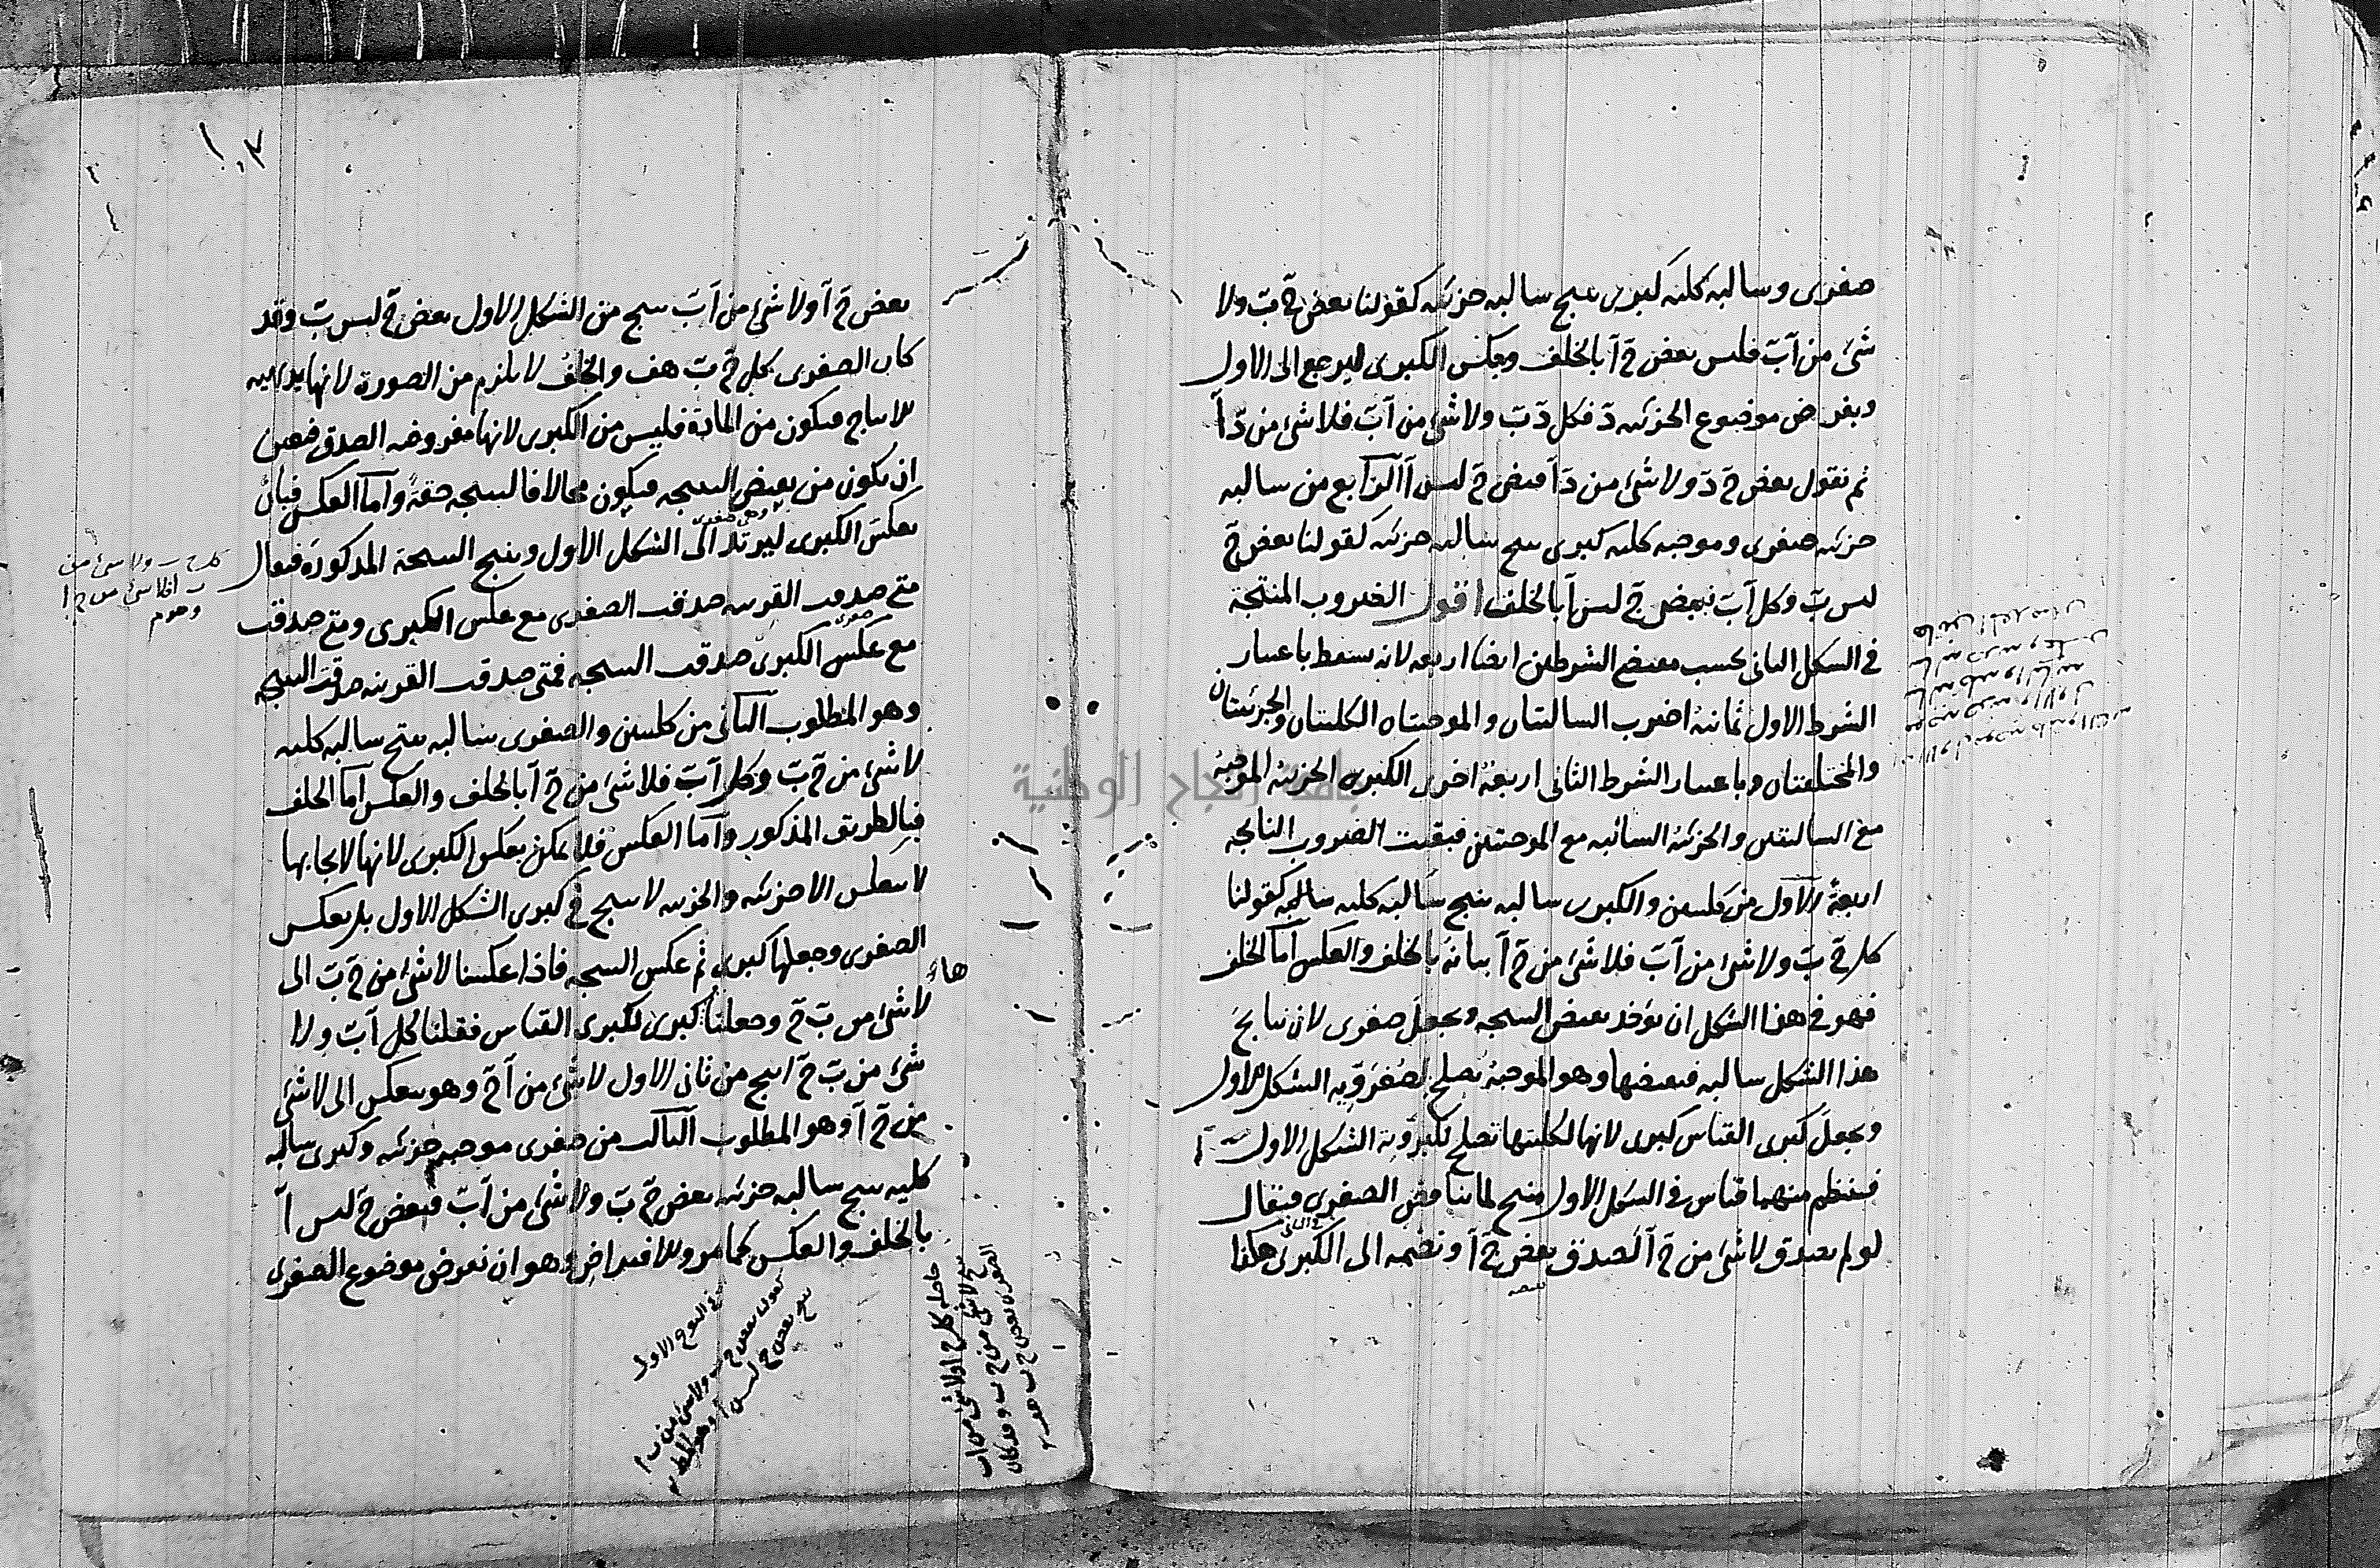 صغرى وسالبة كلية كبرى ينتج سالبة جزئية كقولنا بعض ج ب ولا
شئ من آ ب فليس بعض ج آ بالخلف وبعكس الكبرى ليرجع الى الاول
وبفرض موضوع الجزئية د فكل د ب ولا شئ من آ ب فلا شئ من د آ
ثم نقول بعض ج د ولا شئ من د آ فبعض ج ليس آ الرابع من سالبة
جزئية صغرى وموجبة كلية كبرى ينتج سالبة جزئية كقولنا بعض ج
ليس ب وكل آ ب فبعض ج ليس آ بالخلف اقول الضروب المنتجة
في الشكل الثاني بحسب مقتضى الشرطين ايضا اربعة لانه يسقط باعتبار
الشرط الاول ثمانية اضرب السالبتان والموجبتان الكليتان والجزئيتان
والمختلفتان وباعتبار الشرط الثاني اربعة اخرى الكبرى الجزئية الموجبة
مع السالبتين والجزئية السالبة مع الموجبتين فبقيت الضروب الناتجة
اربعة الاول من كليتين والكبرى سالبة ينتج سالبة كلية كقولنا
كل ج ب ولا شئ من آ ب فلا شئ من ج آ بيانه بالخلف والعكس اما الخلف
فهو في هذا الشكل ان يؤخذ نقيض النتيجة ويجعل صغرى لان نتايج
هذا الشكل سالبة فنقيضها وهو الموجبة يصلح لصغروية الشكل الاول
ويجعل كبرى القياس كبرى لانها لكليتها تصلح لكبروية الشكل الاول
فينتظم منهما قياس في الشكل الاول ينتج لما يناقض الصغرى فيقال
لو لم يصدق لا شئ من ج آ لصدق بعض ج آ ونضمه الى الكبرى هكذا
١٠٣
بعض ج آ ولا شئ من آ ب ينتج من الشكل الاول بعض ج ليس ب وقد
كان الصغرى كل ج ب هف والخلف لا يلزم من الصورة لانها بديهية
الانتاج فيكون من المادة فليس من الكبرى لانها مفروضة الصدق فتعين
ان يكون من نقيض النتيجة فيكون محالا فالنتيجة حقة واما العكس فبان
يعكس الكبرى ليرتد الى الشكل الاول وينتج النتيجة المذكورة فيقال
متى صدقت القرينة صدقت الصغرى مع عكس الكبرى ومتى صدقت
مع عكس الكبرى صدقت النتيجة فمتى صدقت القرينة صدقت النتيجة
وهو المطلوب الثاني من كليتين والصغرى سالبة ينتج سالبة كلية
لا شئ من ج ب وكل آ ب فلا شئ من ج آ بالخلف والعكس اما الخلف
فبالطريق المذكور واما العكس فلا يمكن بعكس الكبرى لانها لايجابها
لا ينعكس الا جزئية والجزئية لا ينتج في كبرى الشكل الاول بل بعكس
الصغرى وجعلها كبرى ثم عكس النتيجة فاذا عكسنا لا شئ من ج ب الى
لا شئ من ب ج وجعلناها كبرى لكبرى القياس فقلنا كل آ ب ولا
شئ من ب ج انتج من ثاني الاول لا شئ من آ ج وهو ينعكس الى لا شئ
من ج آ وهو المطلوب الثالث من صغرى موجبة جزئية وكبرى سالبة
كلية ينتج سالبة جزئية بعض ج ب ولا شئ من آ ب فبعض ج ليس آ
بالخلف والعكس كما مر وللافتراض وهو ان نفرض موضوع الصغرى
كل ج ب ولا شئ من
ب ا فلا شئ من ج ا
جامعة النجاح الوطنية